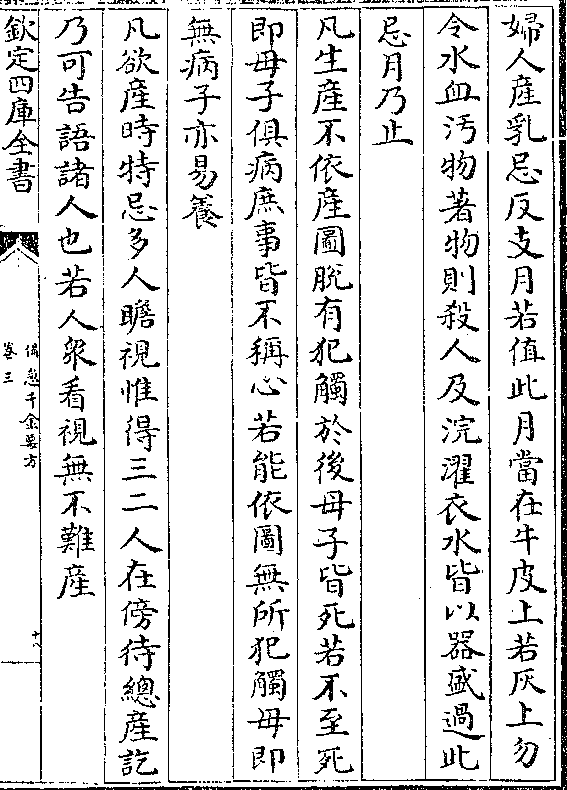 婦人産乳忌反支月若值此月當在牛皮上若灰上勿
令水血汚物著物則殺人及浣濯衣水皆以器盛過此
忌月乃止
凡生産不依産圖脱有犯觸於後母子皆死若不至死
即母子俱病庶事皆不稱心若能依圖無所犯觸母即
無病子亦易養
凡欲産時特忌多人瞻視惟得三二人在傍待總産訖
乃可告語諸人也若人衆看視無不難産
欽定四庫全書
備急千金要方
卷三
十八